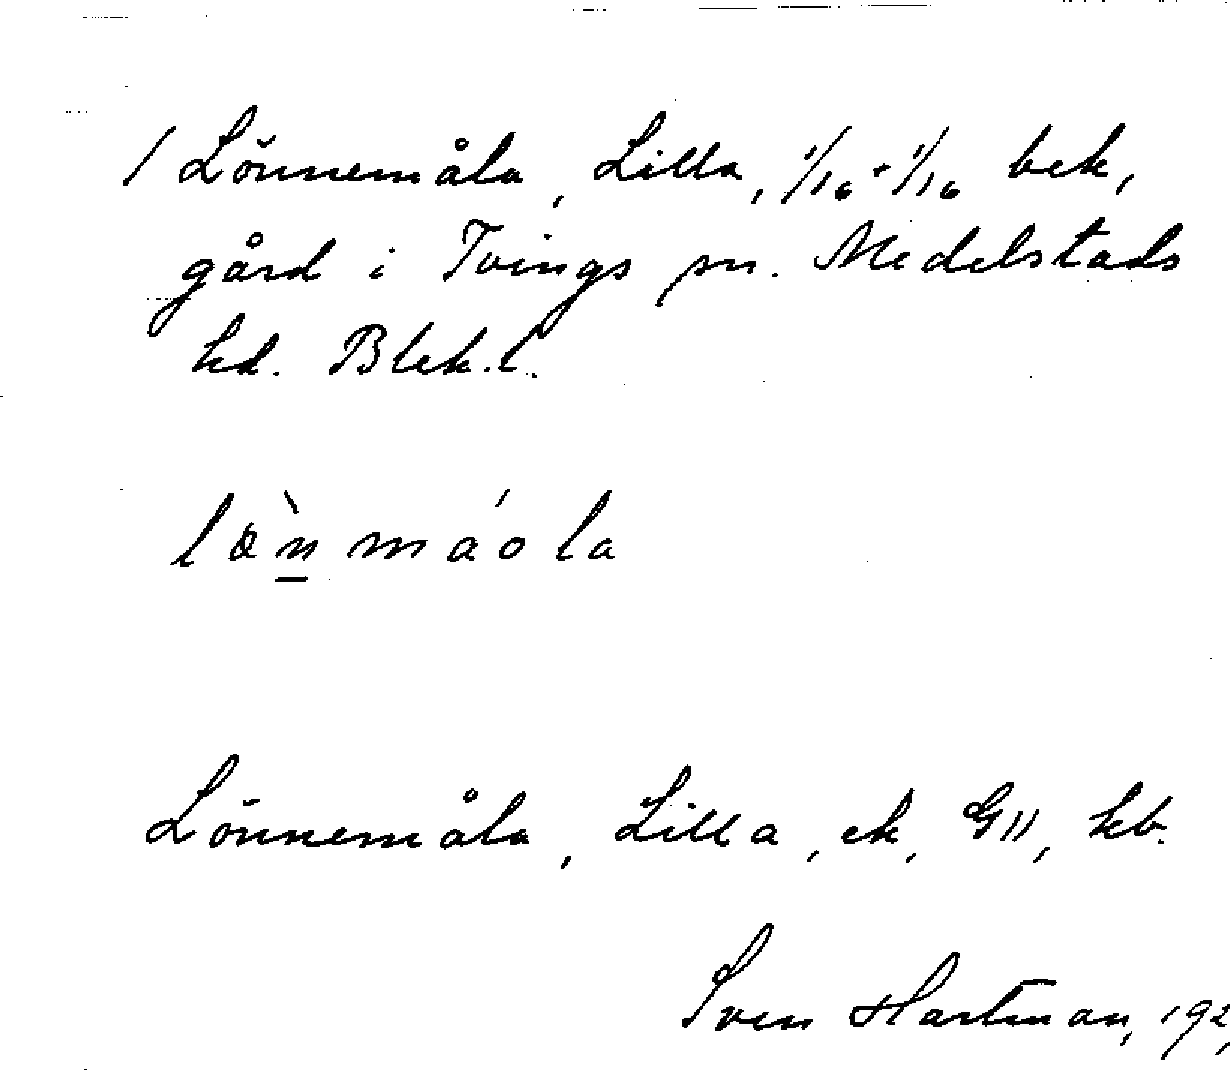 / Lönnemåla, Lilla, 1/16 + 1/16 bek,
gård i Tvings sn. Medelstads
hd. Blek. l.
læ̀n̲máola
Lönnemåla, Lilla, ek, G11, kb.
Sven Hartman, 192